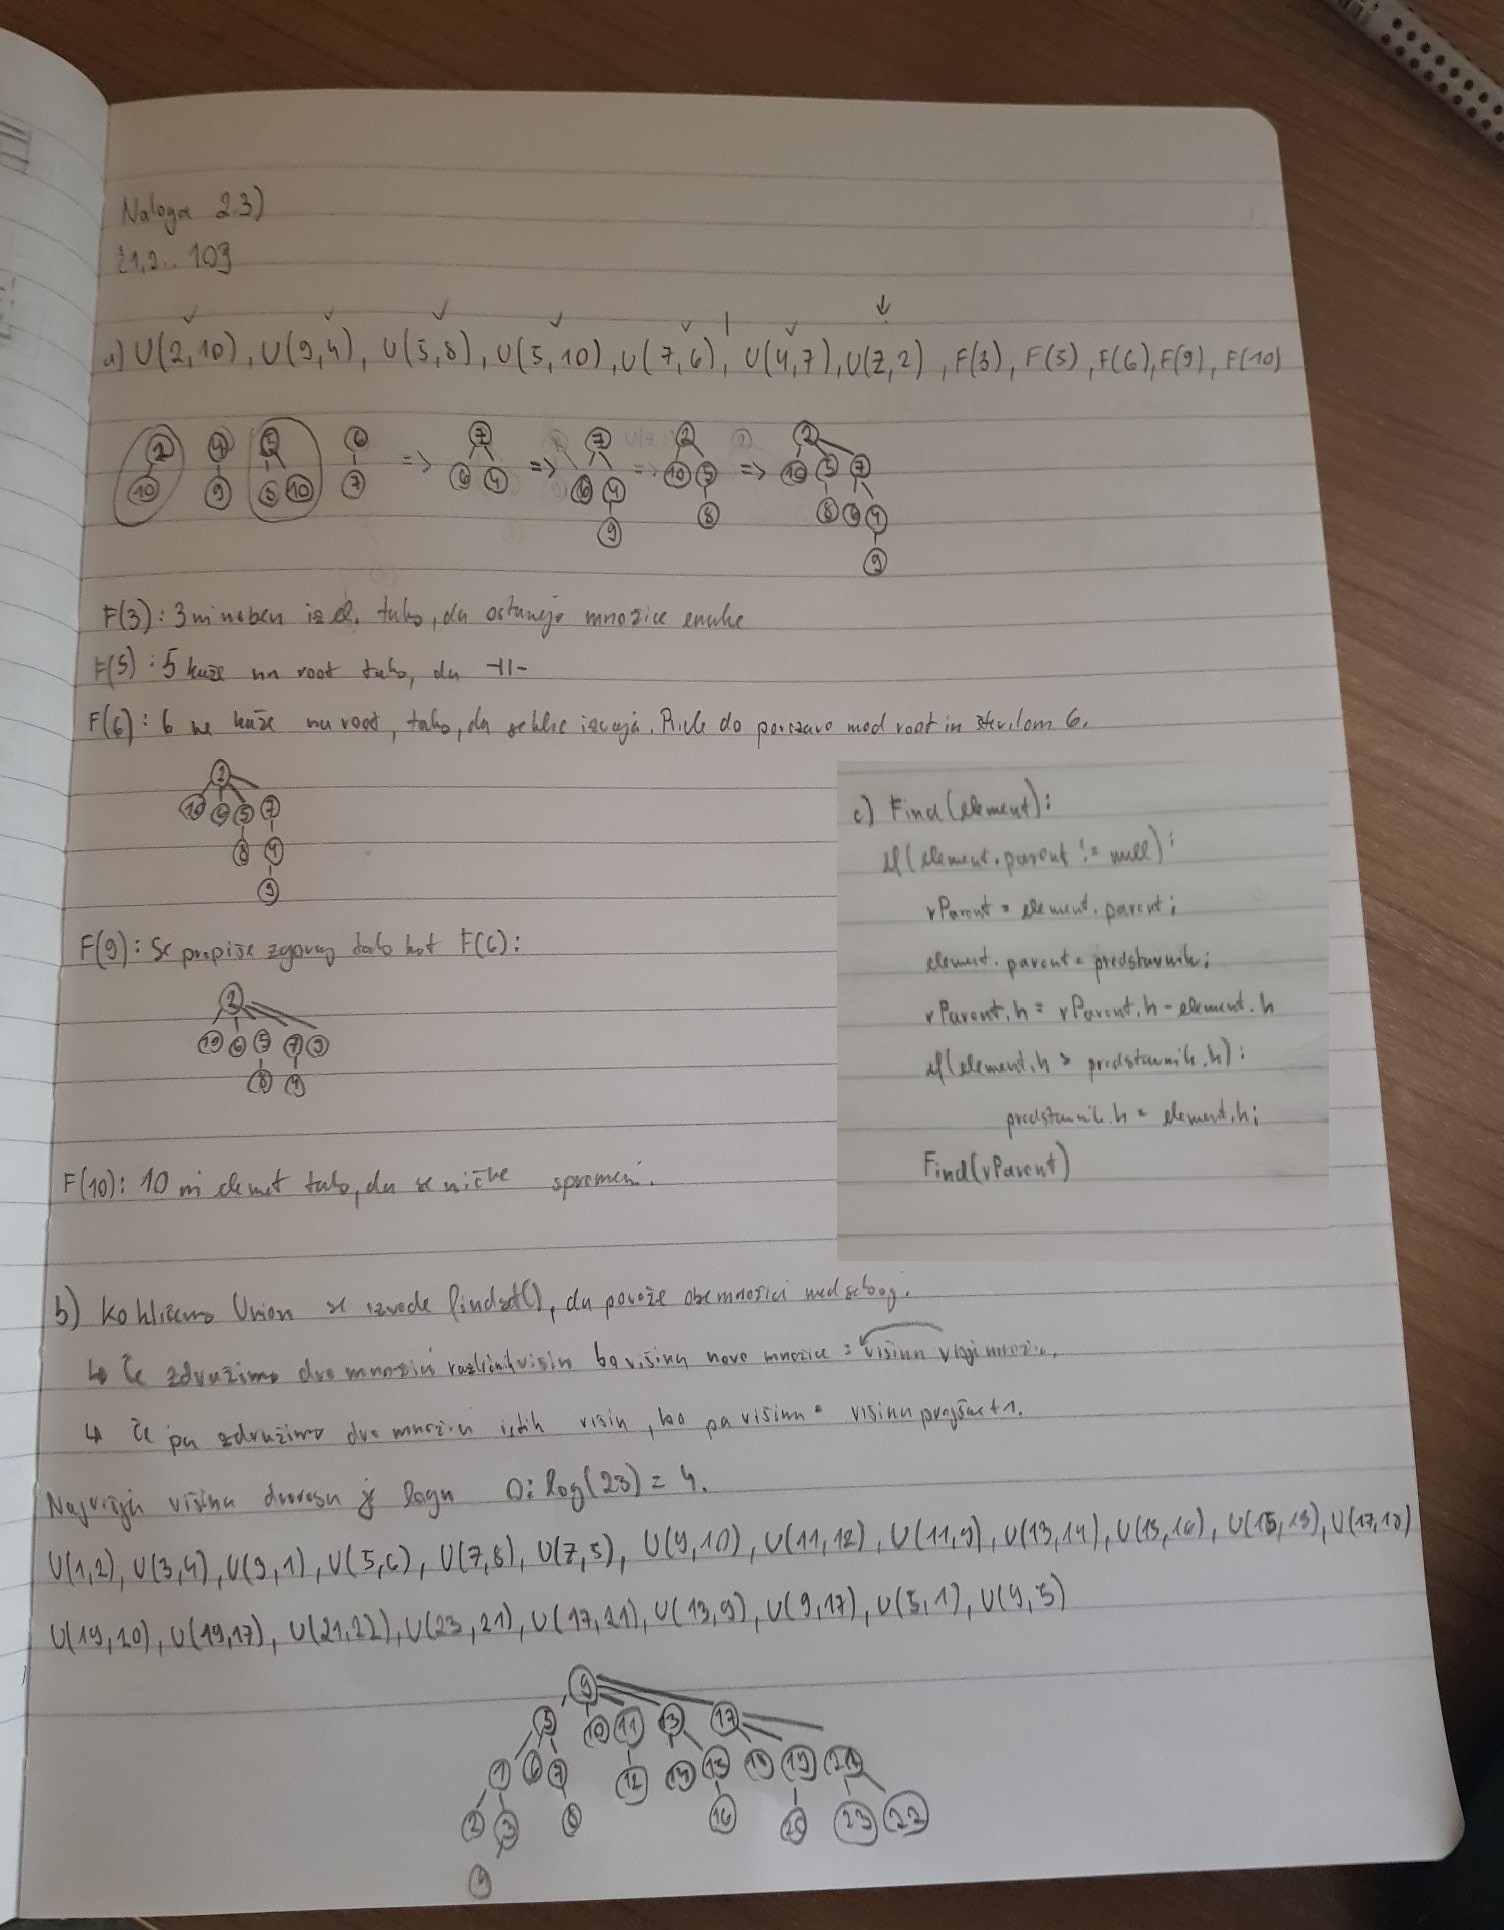 Naloga 2.3)
{1,2.. 10}
a) U(2,10), U(9,4), U(5,8), U(5,10), U(7,6), U(4,7), U(7,2), F(3), F(5), F(6), F(9), F(10)
2 4 5 6 => 7 => 7 => 2 => 2
10 9 8 10 7 6 4 6 4 10 5 10 5 7
9 8 8 6 4
9
F(3): 3 ni noben el. tako, da ostanejo množice enake
F(5): 5 kaže na root tako, da -||-
F(6): 6 ne kaže na root, tako, da se izvaja. Pride do povezave med root in številom 6.
2
10 6 5 7
8 4
9
F(9): Se prepiše zgoraj tako kot F(6):
2
10 6 5 7 9
8 4
F(10): 10 ni tako, da se nič ne spremeni.
c) Find(element):
if(element.parent != null):
rParent = element.parent;
element.parent = predstavnik;
rParent.h = rParent.h - element.h
if(element.h > predstavnik.h):
predstavnik.h = element.h;
Find(rParent)
b) Ko kličemo Union se izvede findset(), da poveže obe množici med seboj.
↳ Če združimo dve množici različnih višin bo višina nove množice = višina višje množice.
↳ Če pa združimo dve množici istih višin, bo pa višina = višina prejšnje +1.
Najvišja višina drevesa je logn O: log(23) = 4.
U(1,2), U(3,4), U(3,1), U(5,6), U(7,8), U(7,5), U(9,10), U(11,12), U(11,9), U(13,14), U(15,16), U(15,13), U(17,18)
U(19,20), U(19,17), U(21,22), U(23,21), U(17,21), U(13,9), U(9,17), U(5,1), U(9,5)
9
5 10 11 13 17
1 6 7 12 14 15 18 19 21
2 3 8 16 20 23 22
4